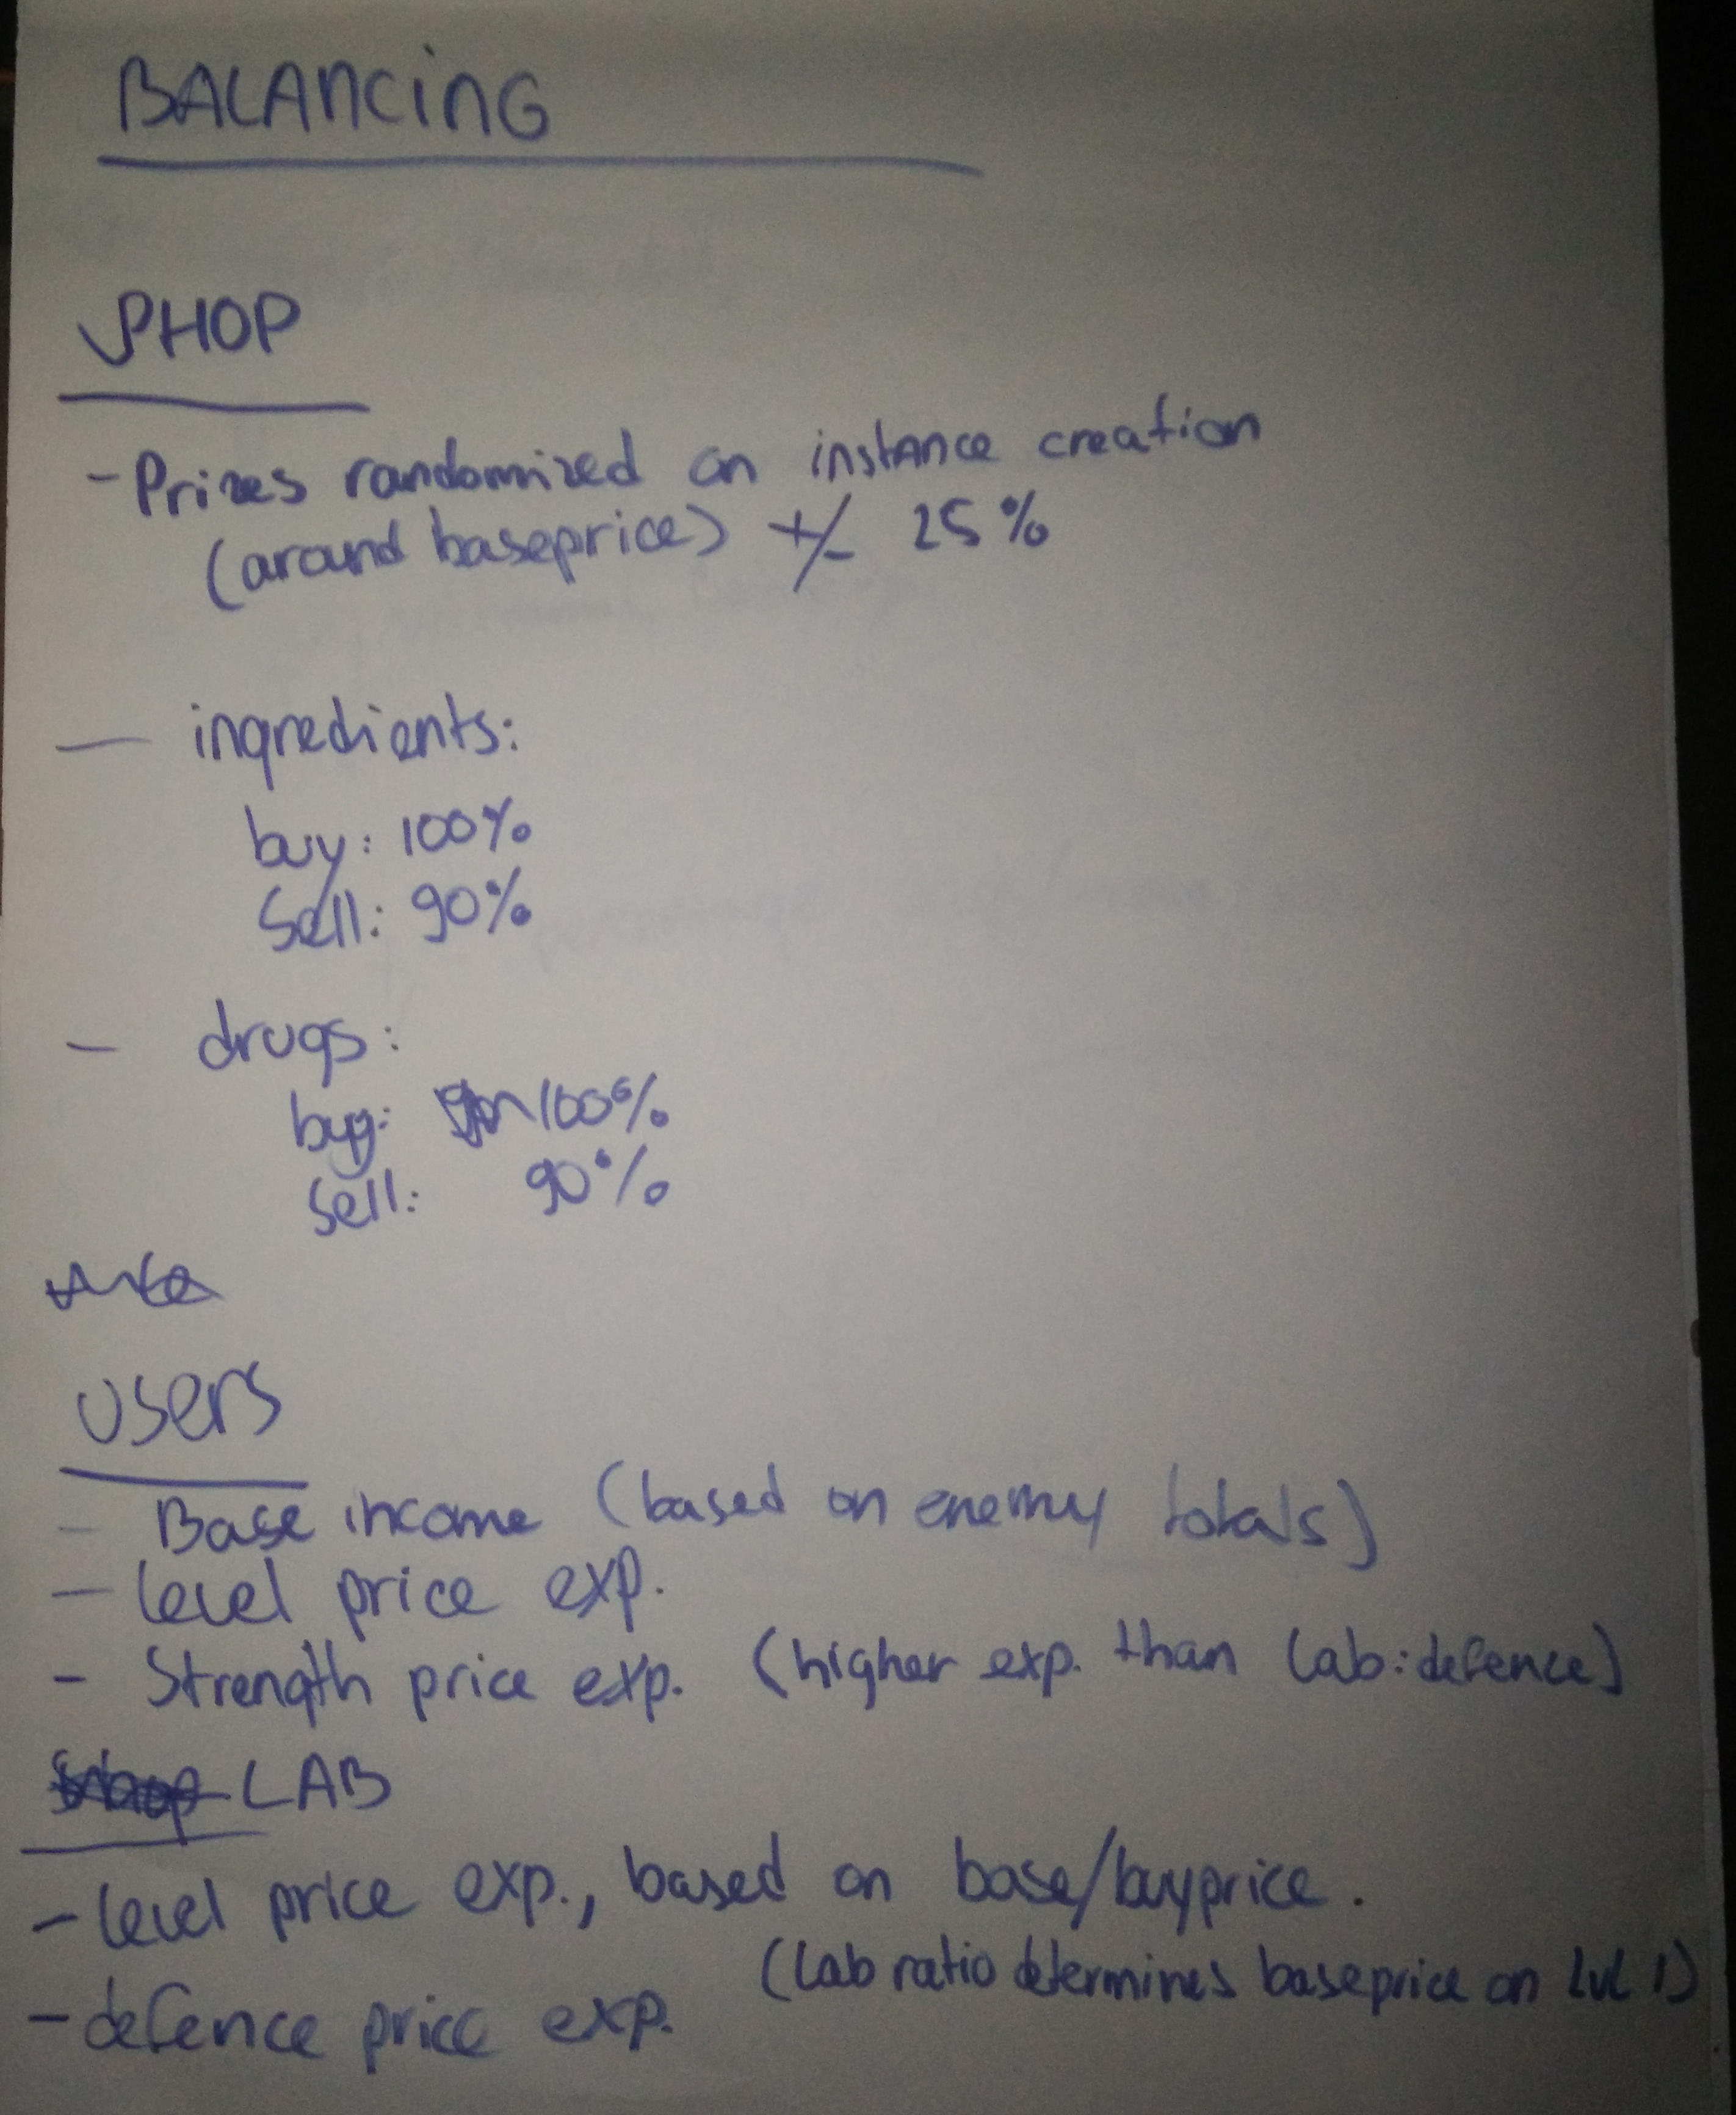 BALANCING
SHOP
- Prizes randomized on instance creation
(around baseprice) +/- 25%
- ingredients:
buy: 100%
Sell: 90%
- drugs:
buy: 100%
Sell: 90%
USERS
- Base income (based on enemy totals)
- level price exp.
- Strength price exp. (higher exp. than lab:defence)
LAB
- level price exp., based on base/buyprice.
(Lab ratio determines baseprice on lvl 1)
- defence price exp.